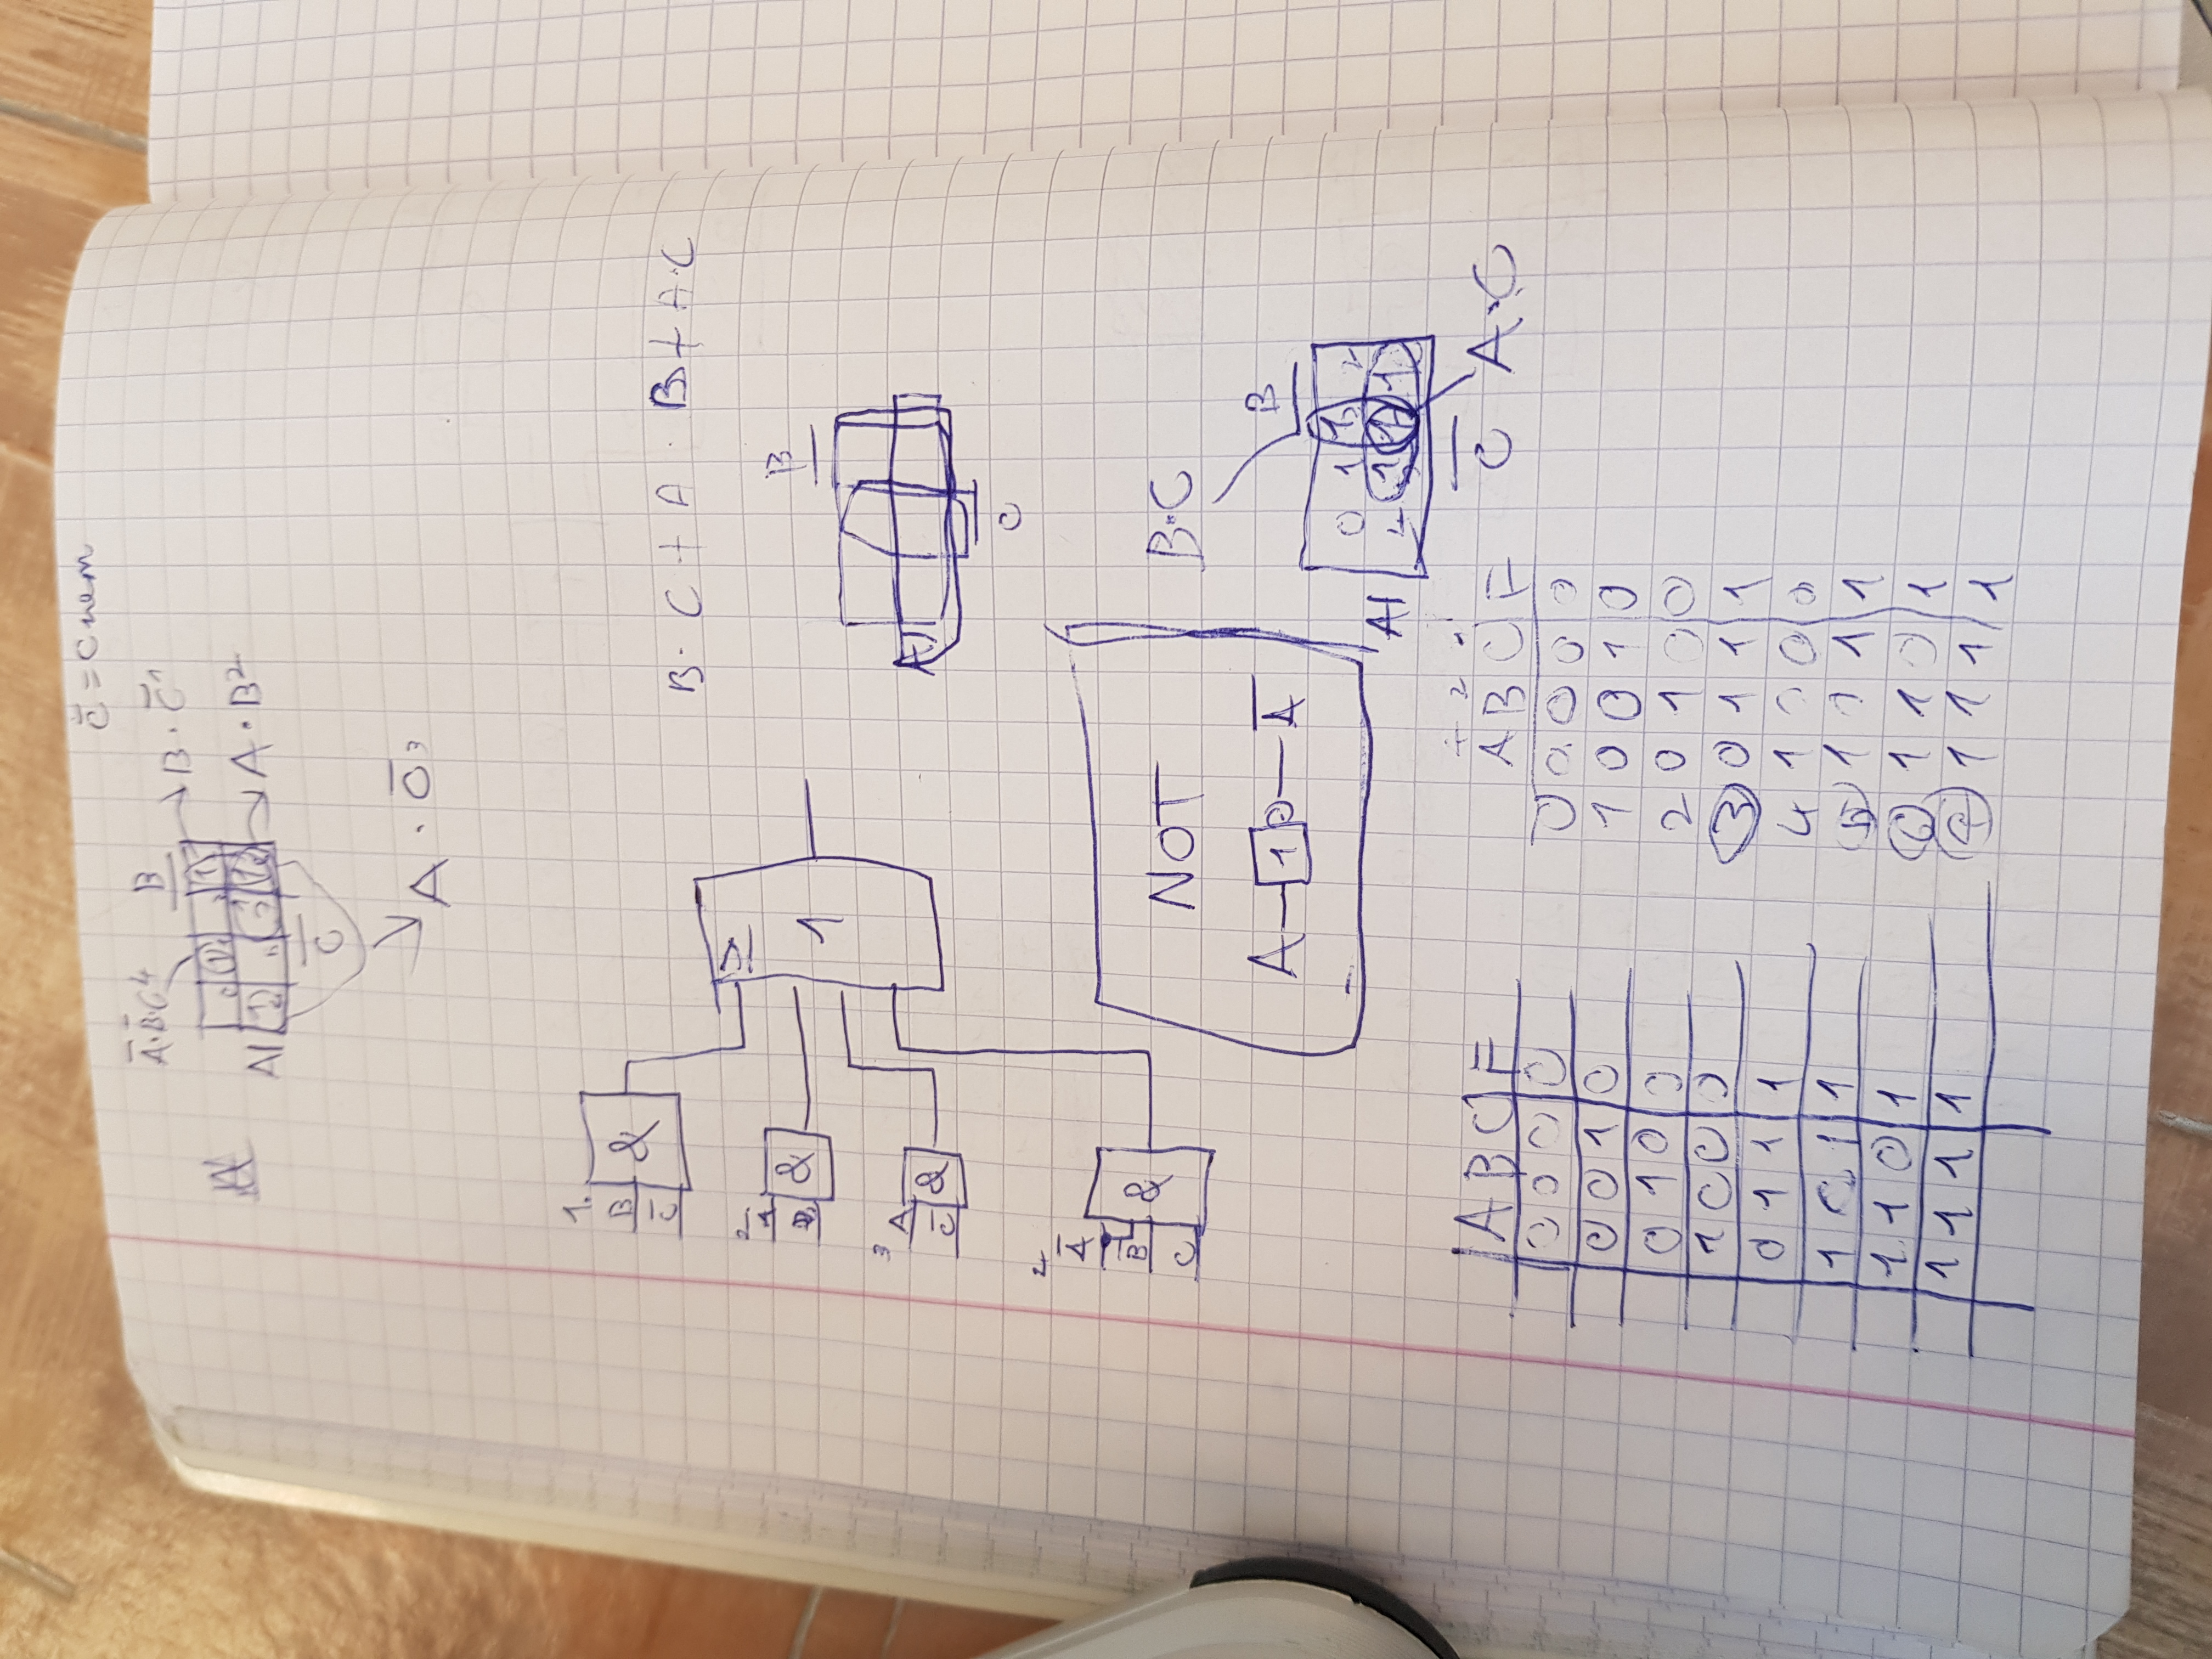 C̄ = C nem
Ā·B̄·C⁴
B
B · C̄¹
1
1
A|
1
1
1
A · B²
C
A · C̄ ³
1.
B
C̄
&
2
A
B
&
3
A
C̄
&
4
Ā
B̄
C
&
≥
1
B · C + A · B + A·C
B
A|
C
NOT
A 1 Ā
B·C
B
0 1 1 2
A|
4 1 1 1
C
A·C
A B C F
0 0 0 0
0 0 1 0
0 1 0 0
1 0 0 0
0 1 1 1
1 0 1 1
1 1 0 1
1 1 1 1
4 2 1
A B C F
0 0 0 0 0
1 0 0 1 0
2 0 1 0 0
3 0 1 1 1
4 1 0 0 0
5 1 0 1 1
6 1 1 0 1
7 1 1 1 1